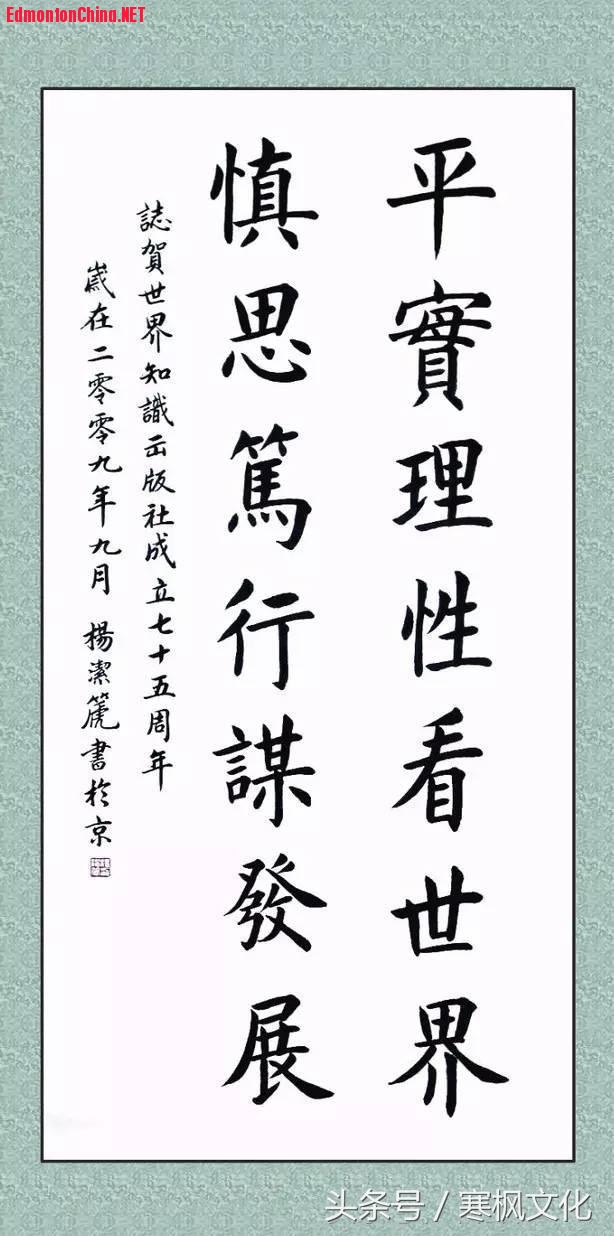 EdmontonChina.NET
平實理性看世界
慎思篤行謀發展
誌賀世界知識出版社成立七十五周年
歲在二零零九年九月 楊潔篪書於京
头条号 / 寒枫文化